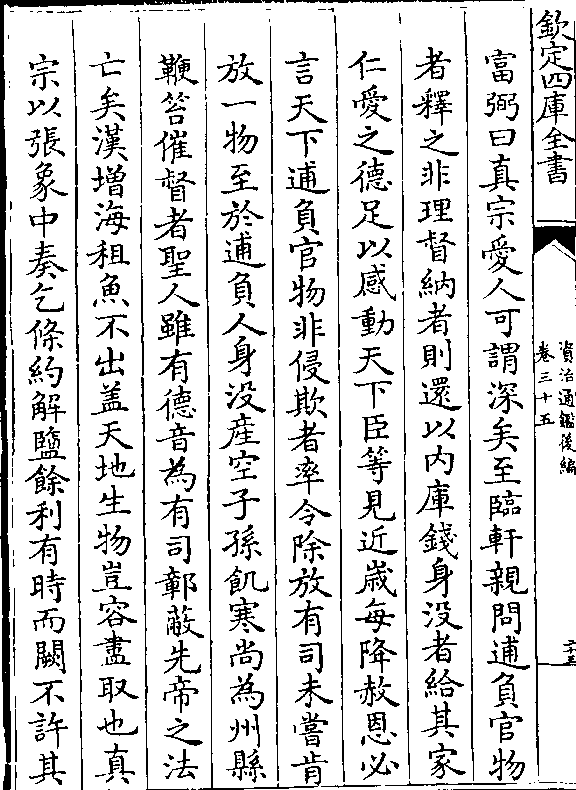 欽定四庫全書
資治通鑑後編
卷三十五
二十五
富弼曰真宗愛人可謂深矣至臨軒親問逋負官物
者釋之非理督納者則還以内庫錢身没者給其家
仁愛之德足以感動天下臣等見近歳每降赦恩必
言天下逋負官物非侵欺者率令除放有司未嘗肯
放一物至於逋負人身没産空子孫飢寒尚為州縣
鞭笞催督者聖人雖有德音為有司鄣蔽先帝之法
亡矣漢增海租魚不出盖天地生物豈容盡取也真
宗以張象中奏乞條約解鹽餘利有時而闕不許其